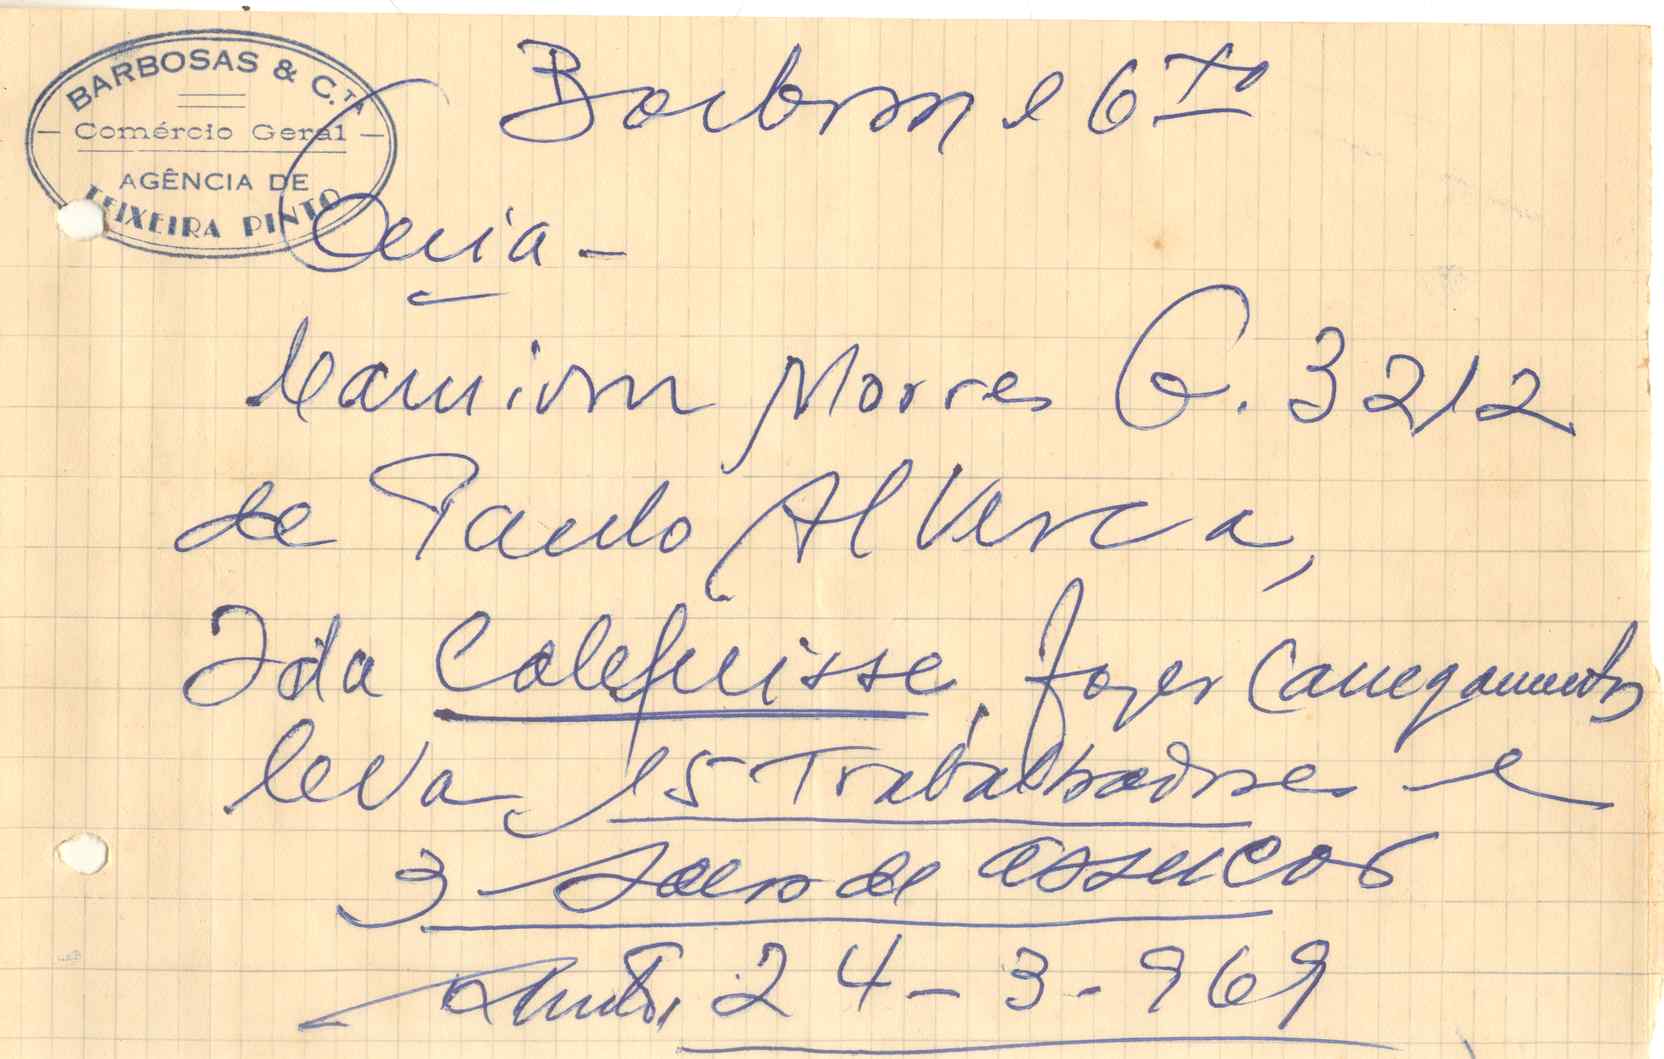 BARBOSAS & C.TA
Comércio Geral
AGÊNCIA DE
TEIXEIRA PINTO
Barbosa e Cta
Guia -
Camion Morres G. 3212
de Paulo Alverca,
Ida Calequisse, fazer Carregamento
leva, 15 Trabalhadores e
3 Sacos de assucar
24-3-969